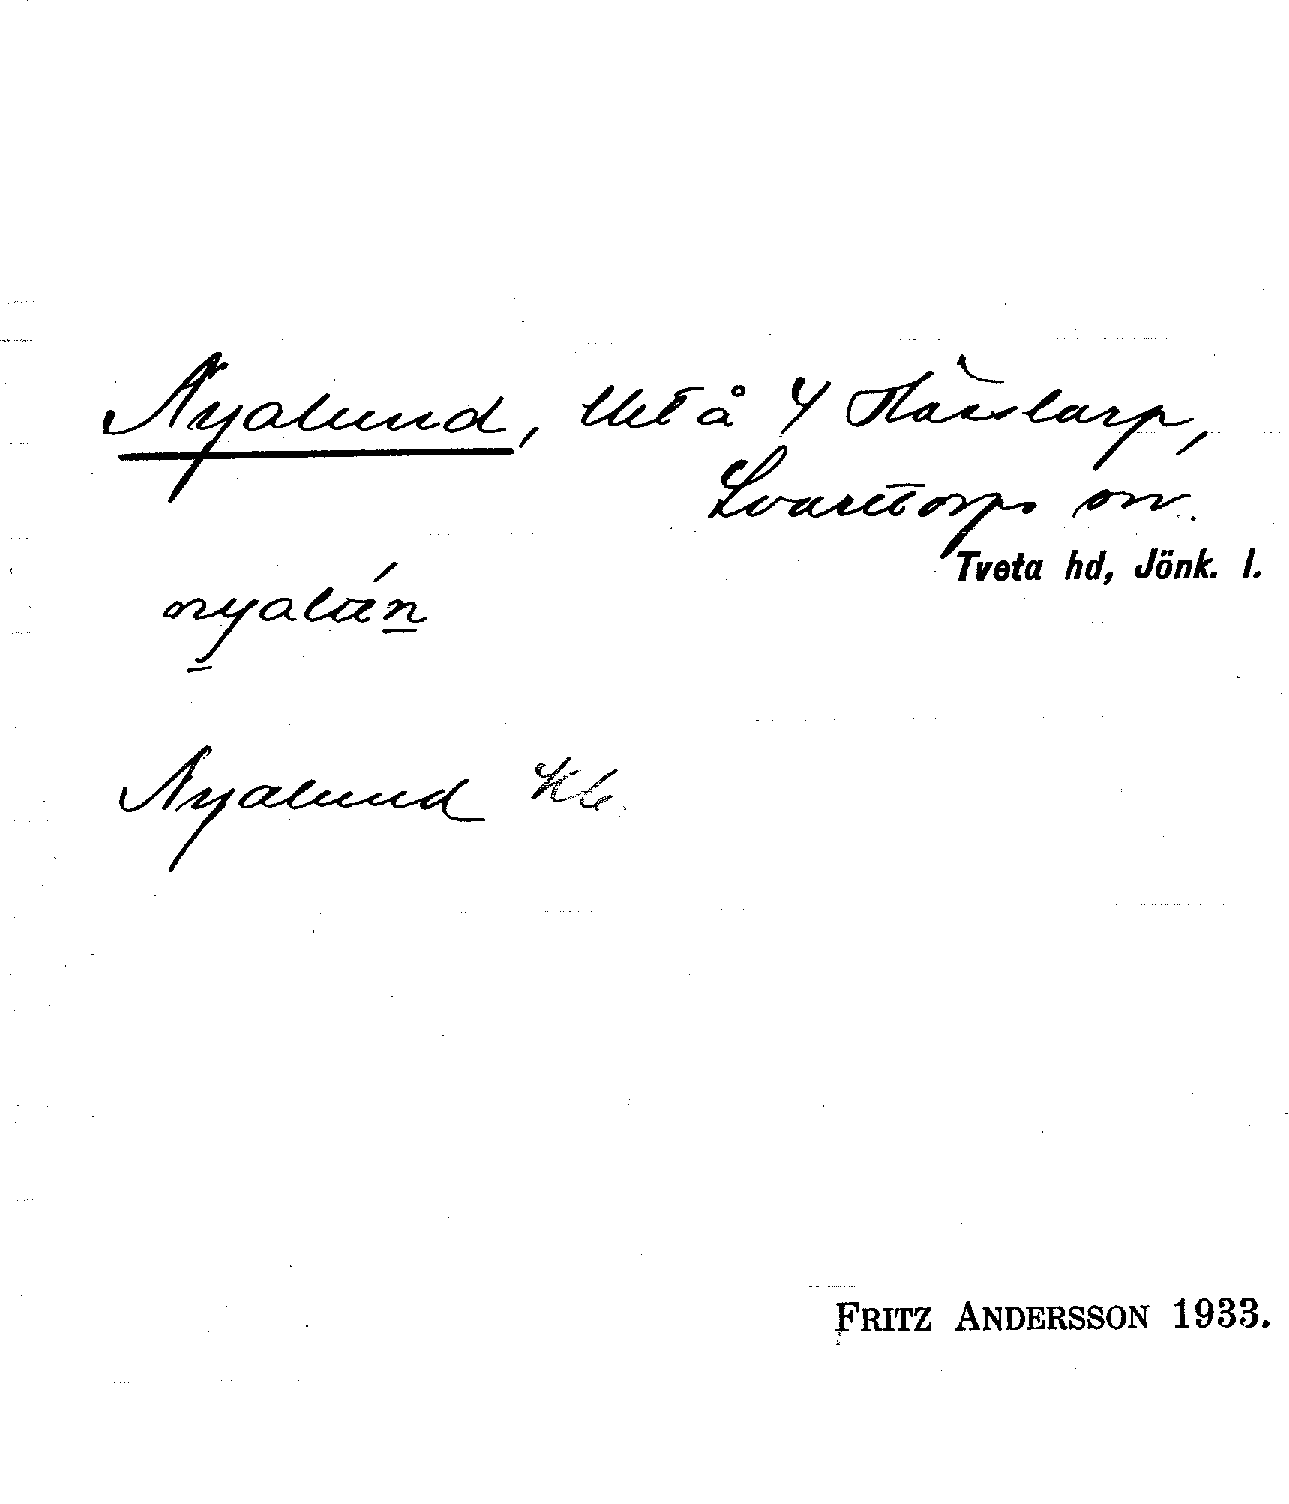 Nyalund, lht å Y Hässlarp,
Svarttorps sn.
Tveta hd, Jönk. l.
nyalán
Nyalund Kb.
FRITZ ANDERSSON 1933.